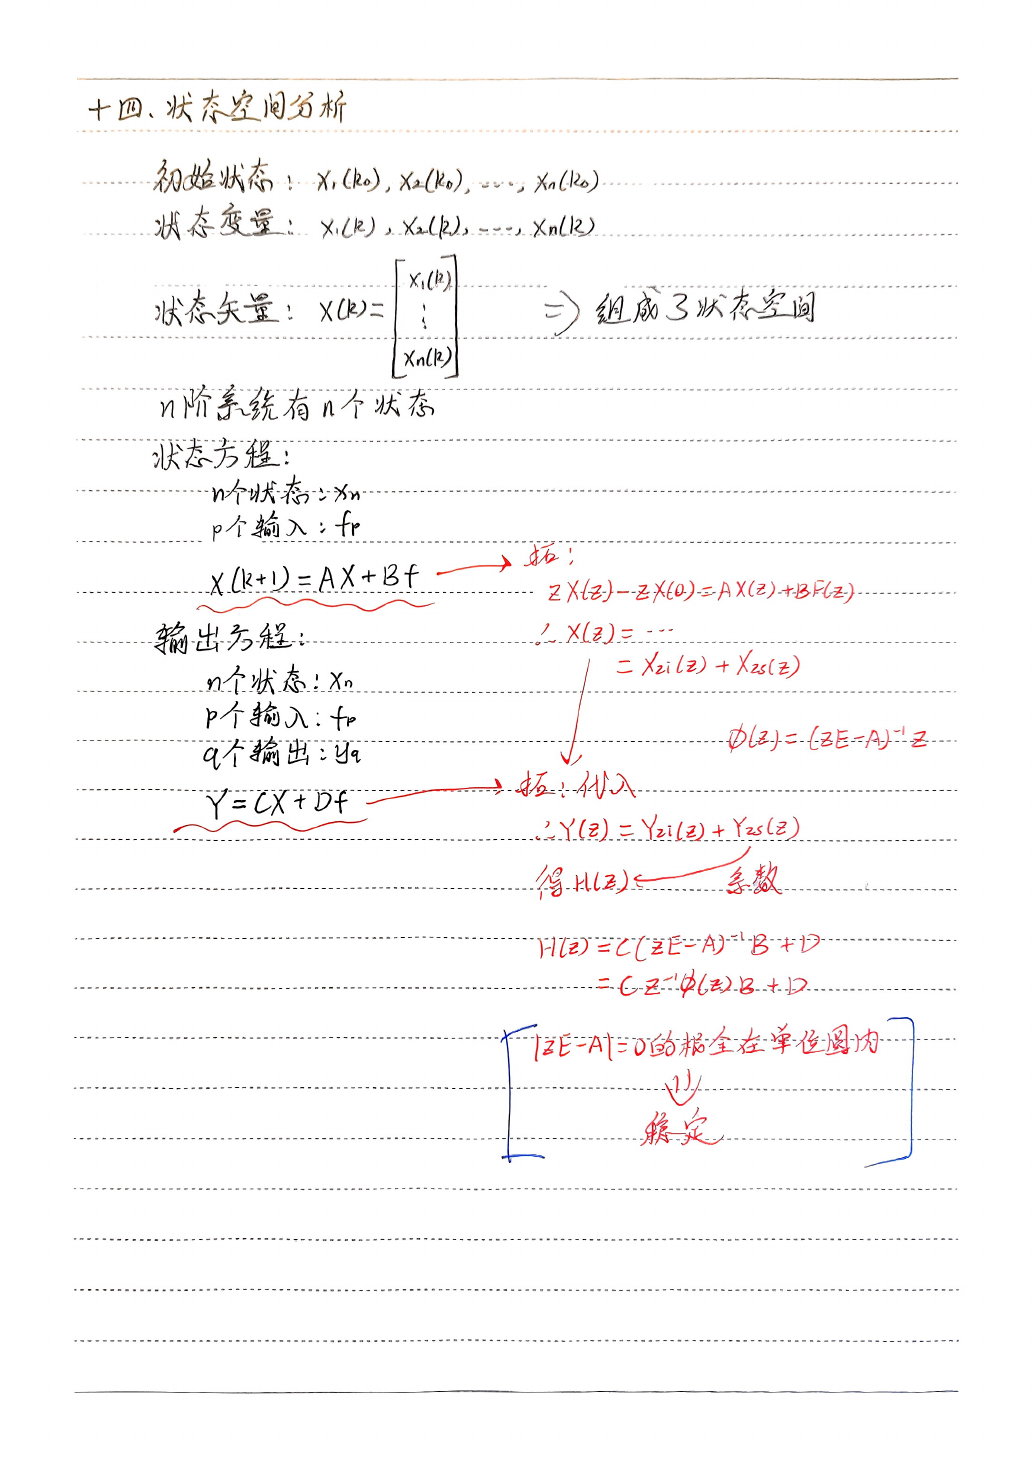 十四、状态空间分析
初始状态：x₁(k₀), x₂(k₀), ---, xₙ(k₀)
状态变量：x₁(k), x₂(k), ---, xₙ(k)
状态矢量：X(k)=[x₁(k) ⋮ xₙ(k)] ⇒ 组成了状态空间
n阶系统有n个状态
状态方程：
n个状态：xₙ
p个输入：fₚ
X(k+1)=AX+Bf → 拓：
zX(z)-zX(0)=AX(z)+BF(z)
∴X(z)=…
=Xzi(z)+Xzs(z)
输出方程：
n个状态：xₙ
p个输入：fₚ
q个输出：yq
φ(z)=(zE-A)⁻¹z
Y=CX+Df → 拓：代入
∴Y(z)=Yzi(z)+Yzs(z)
得H(z) ← 系数
H(z)=C(zE-A)⁻¹B+D
=Cz⁻¹φ(z)B+D
|zE-A|=0的根全在单位圆内
⇓
稳定